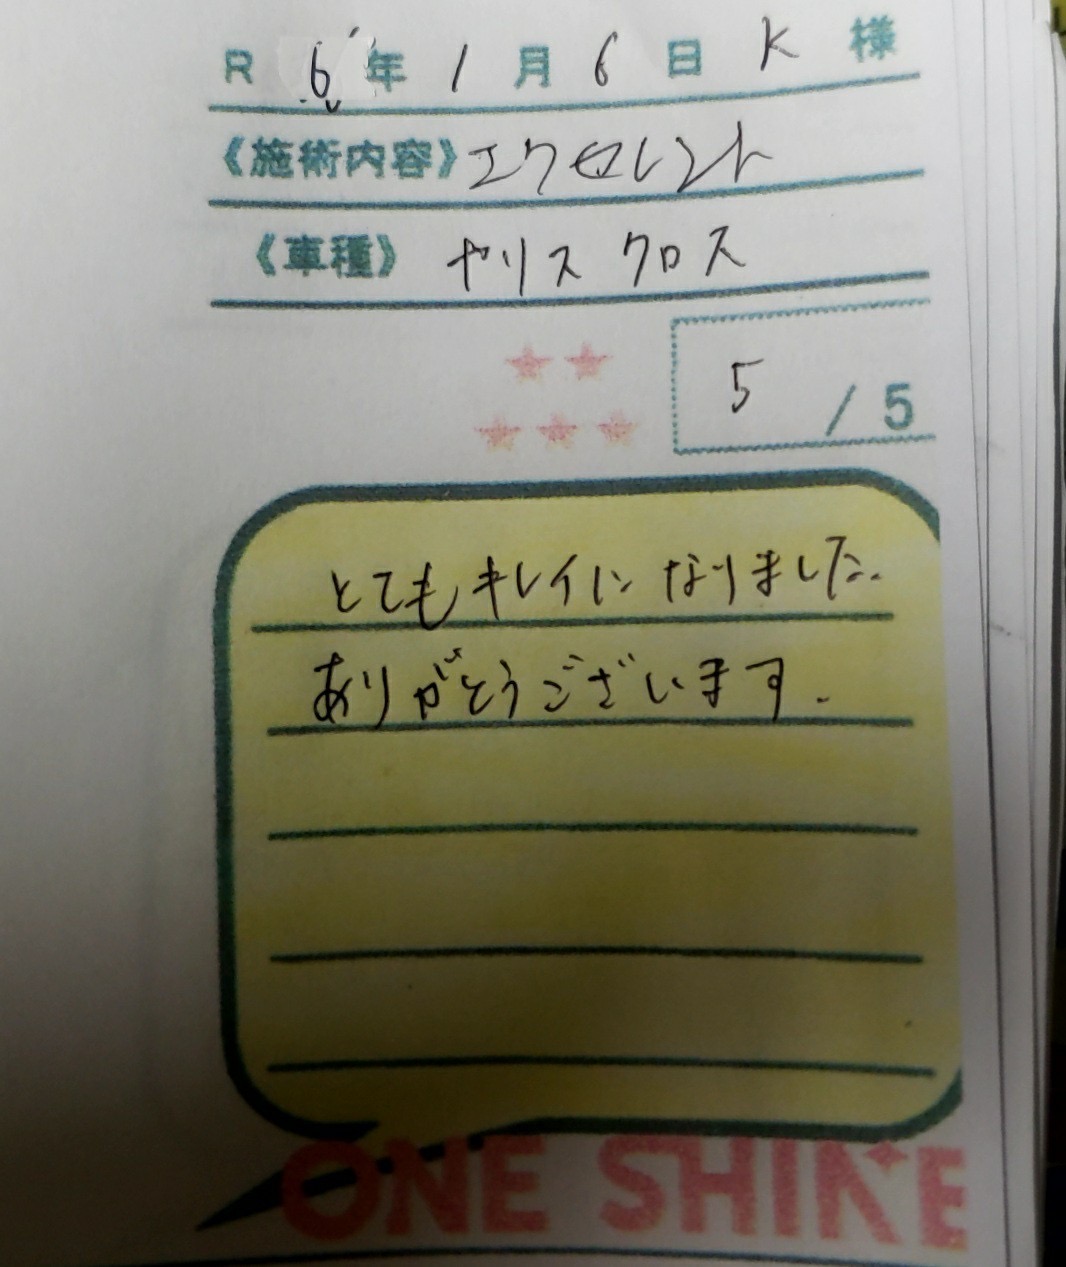 R 6年 1月 6日 K 様
《施術内容》エクセレント
《車種》ヤリス クロス
5 / 5
とてもキレイになりました.
ありがとうございます.
ONE SHINE